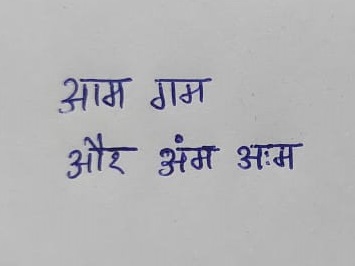 आम गम
और अंम अःम